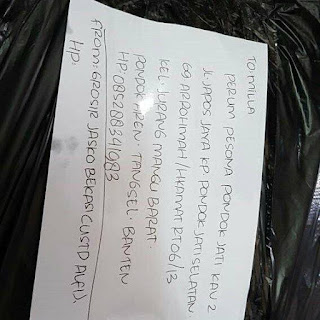 TO MILLA
PERUM PESONA PONDOK JATI KAV 2
JL. JAPOS JAYA KP. PONDOK JATI SELATAN
GG ARROHMAH / HKAMAT RT 06/13
KEL. JURANG MANGU BARAT.
PONDOK AREN. TANGSEL. BANTEN
HP: 085288341983
FROM: GROSIR JASKO BEKASI (CUSTD ALFI).
HP: